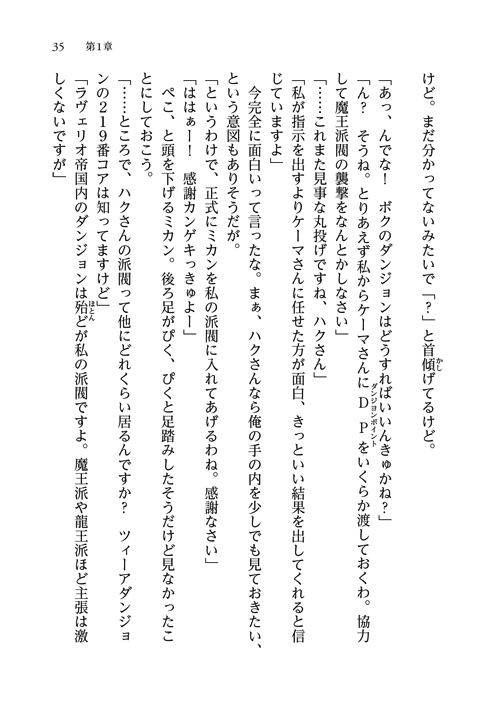 35　第1章
けど。まだ分かってないみたいで「？」と首傾げてるけど。
「あっ、んでな！　ボクのダンジョンはどうすればいいんきゅかね？」
「ん？　そうね。とりあえず私からケーマさんにＤＰをいくらか渡しておくわ。協力
して魔王派閥の襲撃をなんとかしなさい」
「……これまた見事な丸投げですね、ハクさん」
「私が指示を出すよりケーマさんに任せた方が面白、きっといい結果を出してくれると信
じていますよ」
　今完全に面白いって言ったな。まぁ、ハクさんなら俺の手の内を少しでも見ておきたい、
という意図もありそうだが。
「というわけで、正式にミカンを私の派閥に入れてあげるわね。感謝なさい」
「ははぁー！　感謝カンゲキっきゅよー」
　ぺこ、と頭を下げるミカン。後ろ足がぴく、ぴくと足踏みしたそうだけど見なかったこ
とにしておこう。
「……ところで、ハクさんの派閥って他にどれくらい居るんですか？　ツィーアダンジョ
ンの２１９番コアは知ってますけど」
「ラヴェリオ帝国内のダンジョンは殆どが私の派閥ですよ。魔王派や龍王派ほど主張は激
しくないですが」
かし
ダンジョンポイント
ほとん